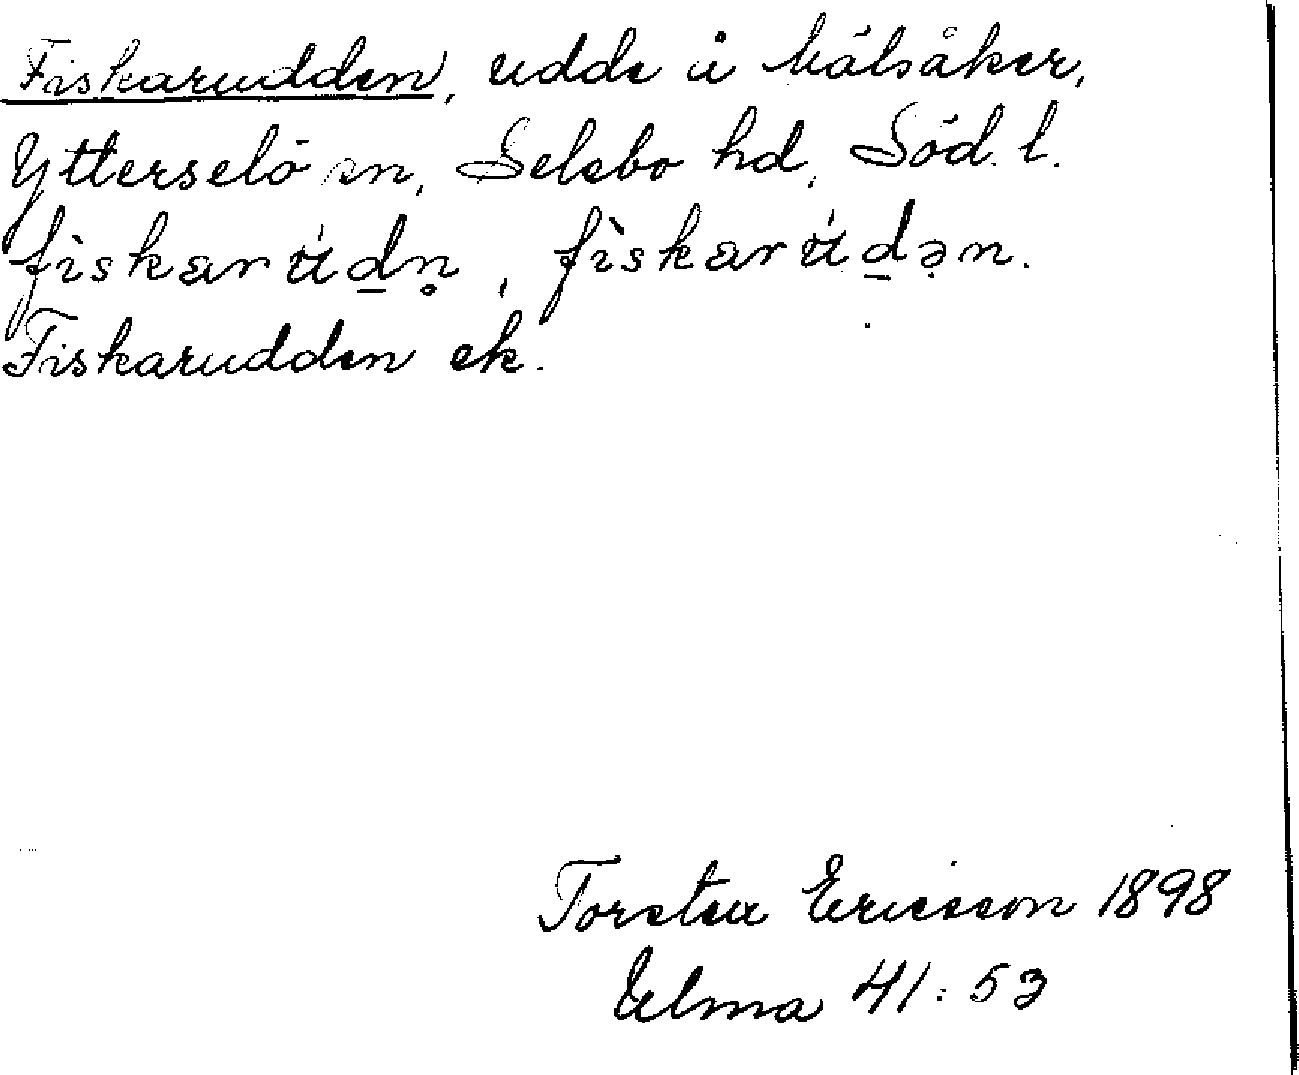 Fiskarudden, udde å Mälsåker,
Ytterselö sn, Selebo hd, Söd. l.
fìskarúd̲n̥, fìskarúd̲ə̣n.
Fiskarudden ek.
Torsten Ericsson 1898
Ulma 41:53